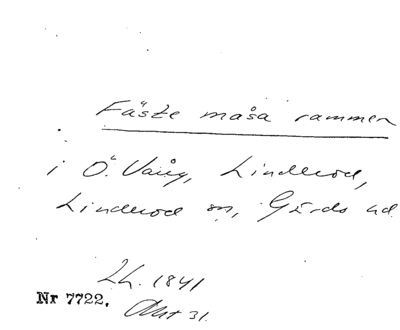 Fäste måsa rammen
i Ö. Vång, Linderöd,
Linderöd sn, Gärds hd.
Lh. 1841
Nr 7722. Akt 31.